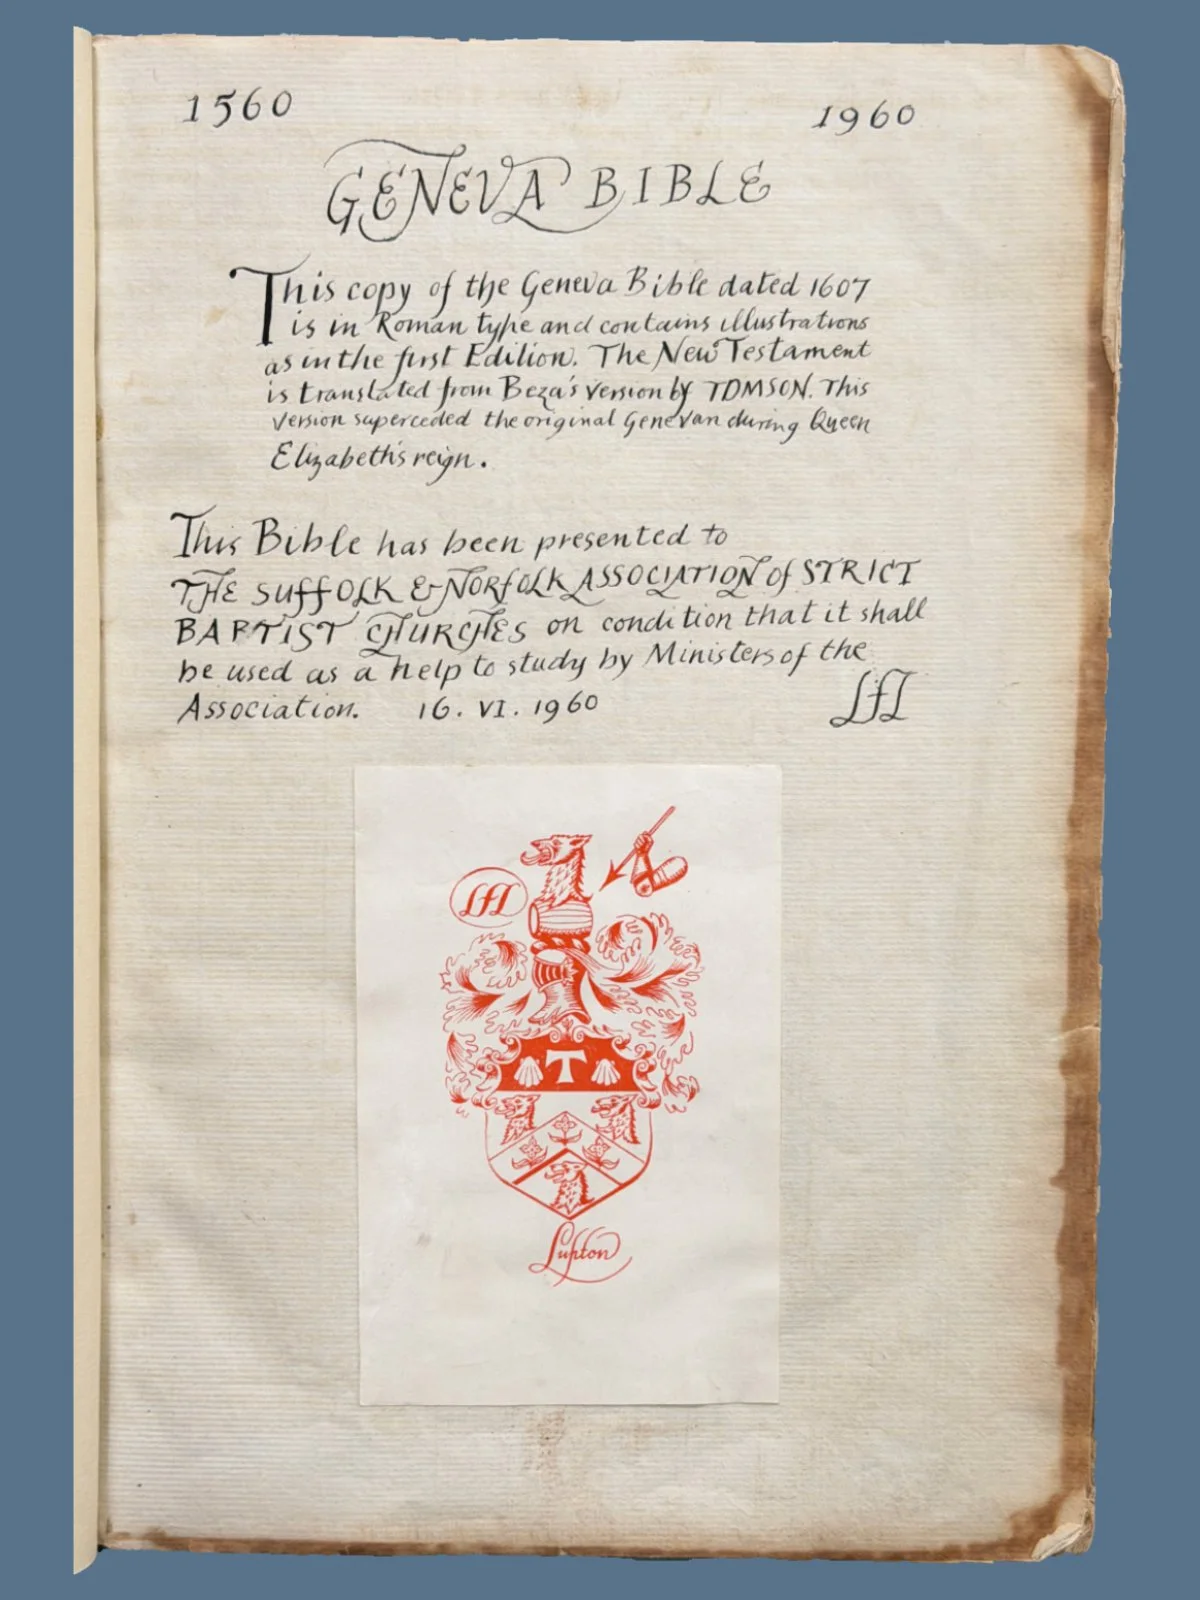 1560 1960
GENEVA BIBLE
This copy of the Geneva Bible dated 1607
is in Roman type and contains illustrations
as in the first Edition. The New Testament
is translated from Beza's version by TOMSON. This
version superceded the original Genevan during Queen
Elizabeth's reign.
This Bible has been presented to
THE SUFFOLK & NORFOLK ASSOCIATION of STRICT
BAPTIST CHURCHES on condition that it shall
be used as a help to study by Ministers of the
Association. 16. VI. 1960
LFL
LFL
T
Lupton